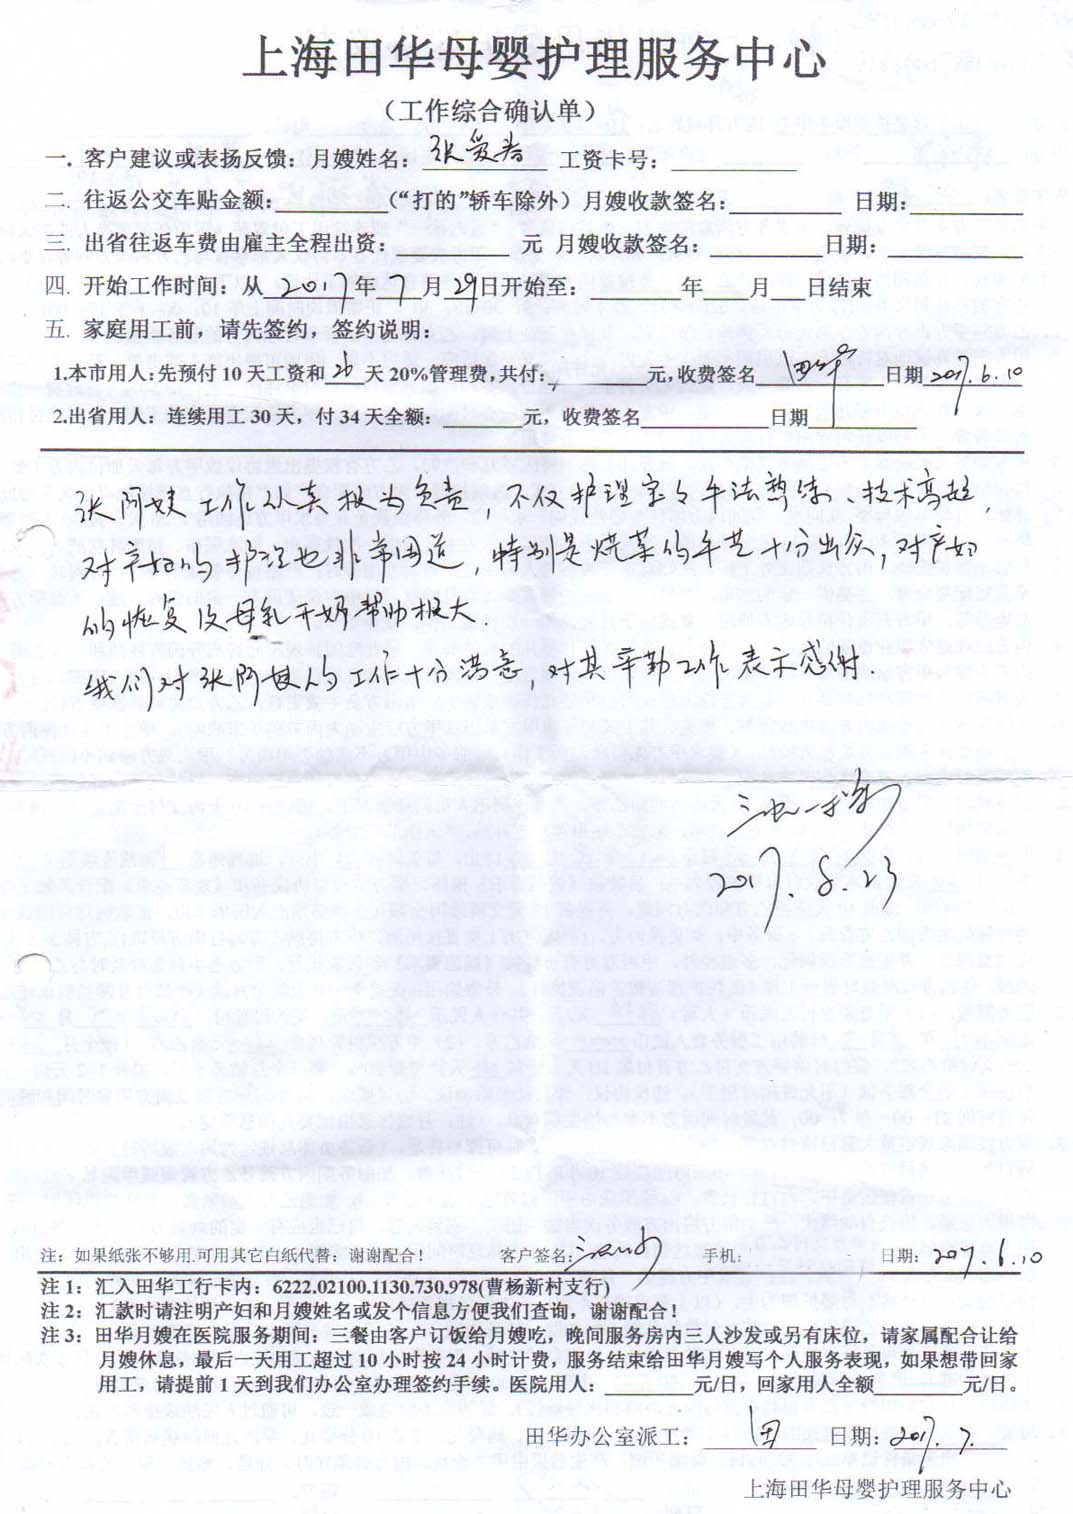 上海田华母婴护理服务中心
（工作综合确认单）
一. 客户建议或表扬反馈: 月嫂姓名: 张爱芳 工资卡号:
二. 往返公交车贴金额: （“打的”轿车除外）月嫂收款签名: 日期:
三. 出省往返车费由雇主全程出资: 元 月嫂收款签名: 日期:
四. 开始工作时间: 从 2017年 7月 29日开始至: 年 月 日结束
五. 家庭用工前，请先签约，签约说明:
1.本市用人: 先预付 10 天工资和 26 天 20%管理费, 共付: 元, 收费签名 田 日期 2017.6.10
2.出省用人: 连续用工 30 天, 付 34 天全额: 元, 收费签名 日期
张阿姨工作认真极为负责，不仅护理宝宝手法熟练、技术高超，
对产妇的护理也非常周道，特别是烧菜的手艺十分出众，对产妇
的恢复及母乳开奶帮助极大
我们对张阿姨的工作十分满意 对其辛勤工作表示感谢.
2017.8.23
注: 如果纸张不够用,可用其它白纸代替，谢谢配合! 客户签名: 手机: 日期: 2017.6.10
注 1: 汇入田华工行卡内: 6222.02100.1130.730.978(曹杨新村支行)
注 2: 汇款时请注明产妇和月嫂姓名或发个信息方便我们查询，谢谢配合!
注 3: 田华月嫂在医院服务期间: 三餐由客户订饭给月嫂吃，晚间服务房内三人沙发或另有床位，请家属配合让给
月嫂休息，最后一天用工超过 10 小时按 24 小时计费，服务结束给田华月嫂写个人服务表现，如果想带回家
用工，请提前 1 天到我们办公室办理签约手续。医院用人: 元/日，回家用人全额 元/日。
田华办公室派工: 田 日期: 2017.7.
上海田华母婴护理服务中心